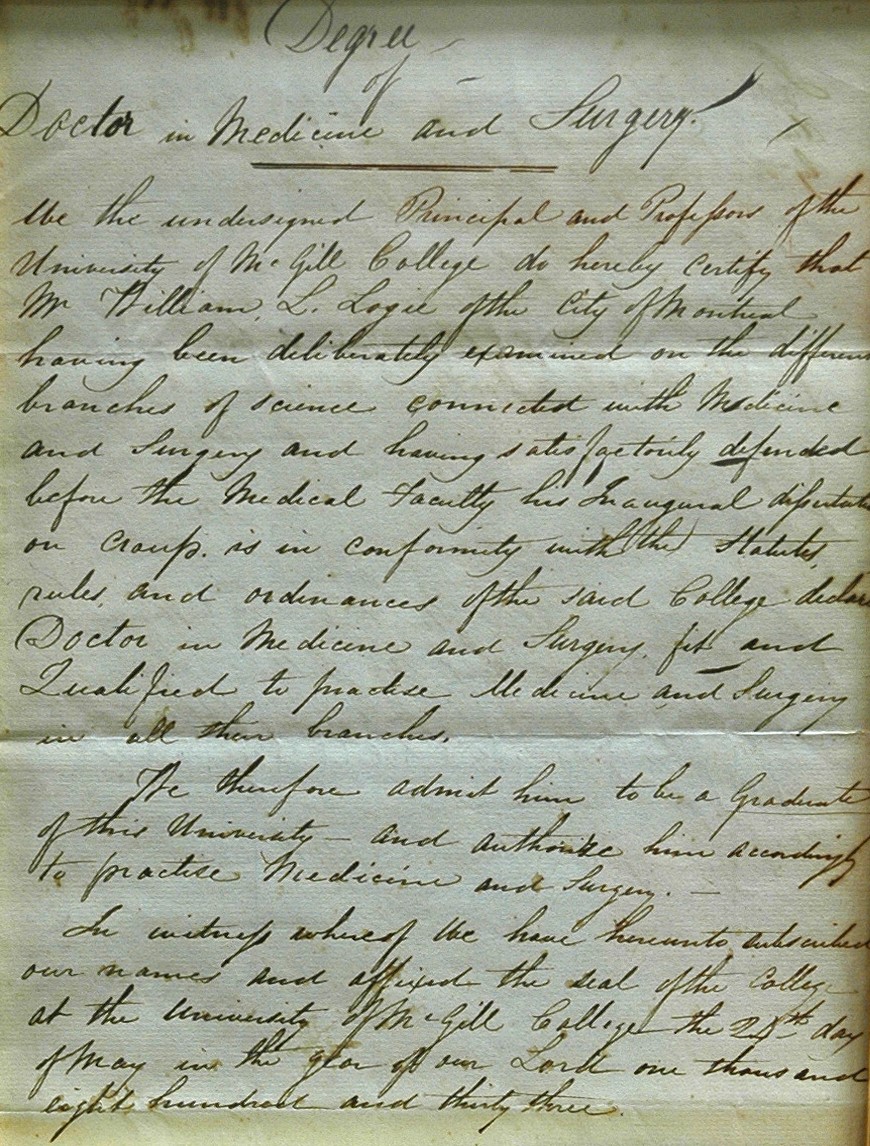 Degree
of
Doctor in Medicine and Surgery.
We the undersigned Principal and Professors of the
University of McGill College do hereby certify that
Mr William L. Logie of the City of Montreal
having been deliberately examined on the differen
branches of science connected with Medicine
and Surgery and having satisfactorily defended
before the Medical Faculty his Inaugural dissertatio
on Croup. is in conformity with (the) Statutes,
rules, and ordinances of the said College declar
Doctor in Medicine and Surgery, fit and
Qualified to practise Medicine and Surgery
in all their branches.
We therefore admit him to be a Graduate
of this University and authorize him accordingly
to practise Medicine and Surgery. —
In witness whereof We have hereunto subscribed
our names and affixed the seal of the College
at the University of McGill College the day
of May in the year of our Lord one thousand
eight hundred and thirty three.